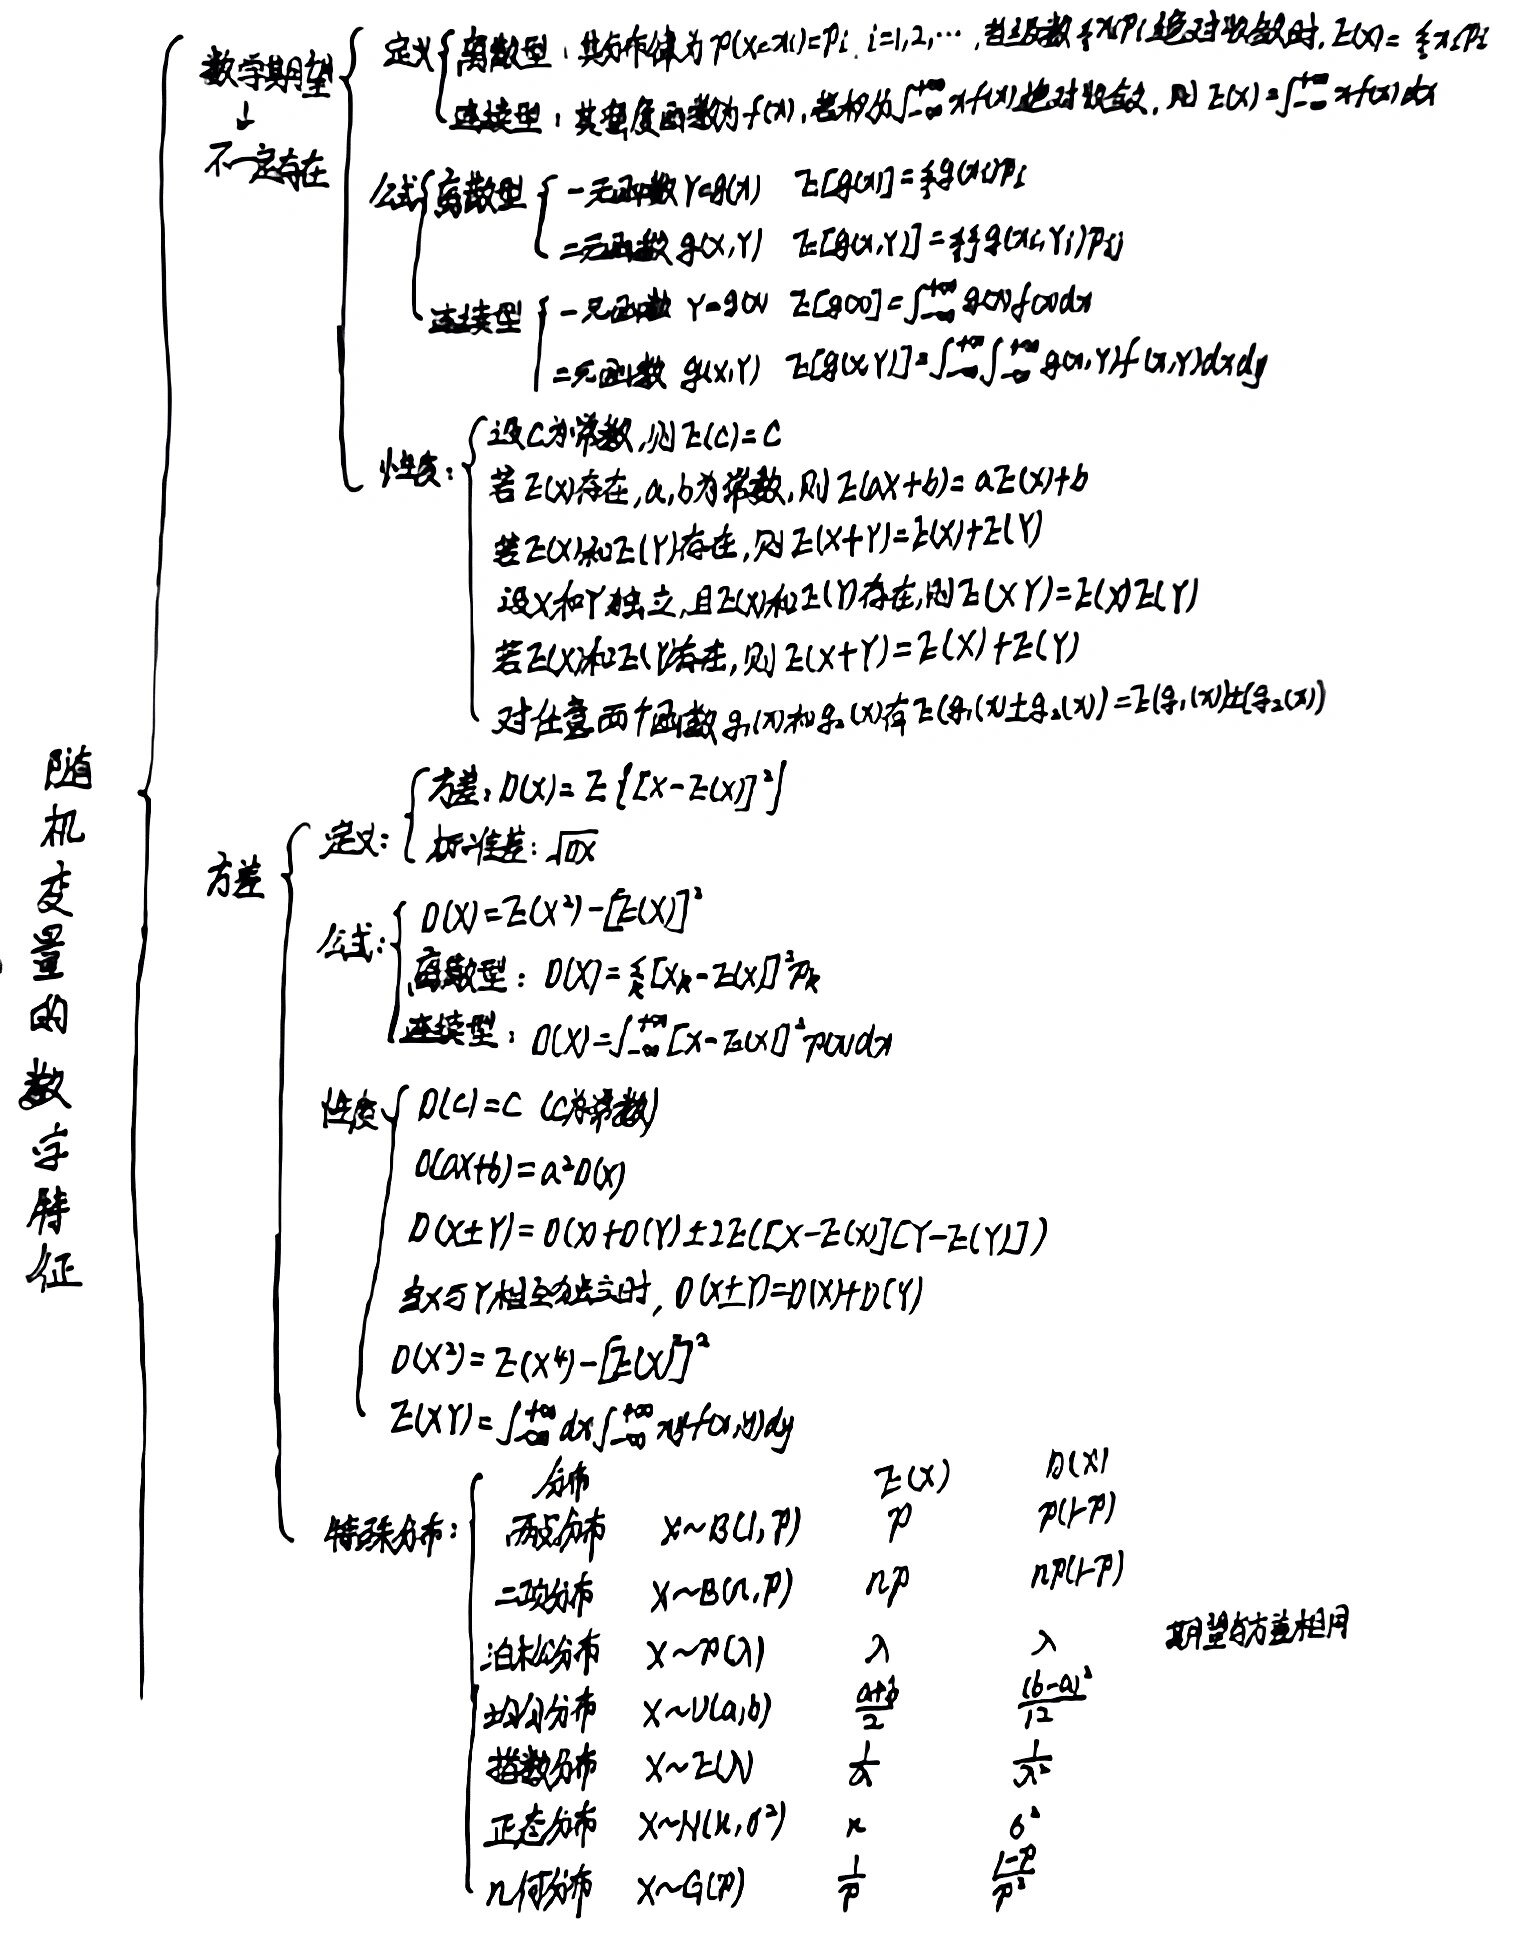 随机变量的数字特征
数学期望
↓
不一定存在
定义
离散型：其分布律为P(X=xi)=Pi, i=1,2,…,当级数∑xiPi绝对收敛时, E(X)=∑xiPi
连续型：其密度函数为f(x),若积分∫_{-∞}^{+∞}xf(x)绝对收敛,则E(X)=∫_{-∞}^{+∞}xf(x)dx
公式
离散型
一元函数Y=g(x) E[g(x)]=∑g(xi)Pi
二元函数g(X,Y) E[g(x,Y)]=∑∑g(xi,Yj)Pij
连续型
一元函数 Y=g(x) E[g(x)]=∫_{-∞}^{+∞}g(x)f(x)dx
二元函数 g(x,Y) E[g(x,Y)]=∫_{-∞}^{+∞}∫_{-∞}^{+∞}g(x,Y)f(x,Y)dxdy
性质：
设C为常数,则E(C)=C
若E(X)存在,a,b为常数,则E(aX+b)=aE(X)+b
若E(X)和E(Y)存在,则E(X+Y)=E(X)+E(Y)
设X和Y独立,且E(X)和E(Y)存在,则E(XY)=E(X)E(Y)
若E(X)和E(Y)存在,则E(X+Y)=E(X)+E(Y)
对任意两个函数g₁(x)和g₂(x)有E(g₁(x)±g₂(x))=E(g₁(x))±(g₂(x))
方差
定义：
方差：D(X)=E{[X-E(X)]²}
标准差：√DX
公式：
D(X)=E(X²)-[E(X)]²
离散型：D(X)=∑_k[X_k-E(X)]²P_k
连续型：D(X)=∫_{-∞}^{+∞}[X-E(X)]²P(x)dx
性质
D(C)=C (C为常数)
D(aX+b)=a²D(X)
D(X±Y)=D(X)+D(Y)±2E([X-E(X)][Y-E(Y)])
当X与Y相互独立时,D(X±Y)=D(X)+D(Y)
D(X²)=E(X⁴)-[E(X²)]²
E(XY)=∫_{-∞}^{+∞}dx∫_{-∞}^{+∞}xyf(x,y)dy
特殊分布：
分布 E(X) D(X)
两点分布 X~B(1,P) P P(1-P)
二项分布 X~B(n,P) nP nP(1-P)
泊松分布 X~P(λ) λ λ 期望与方差相同
均匀分布 X~U(a,b) (a+b)/2 (b-a)²/12
指数分布 X~E(λ) 1/λ 1/λ²
正态分布 X~N(μ,σ²) μ σ²
几何分布 X~G(P) 1/P (1-P)/P²